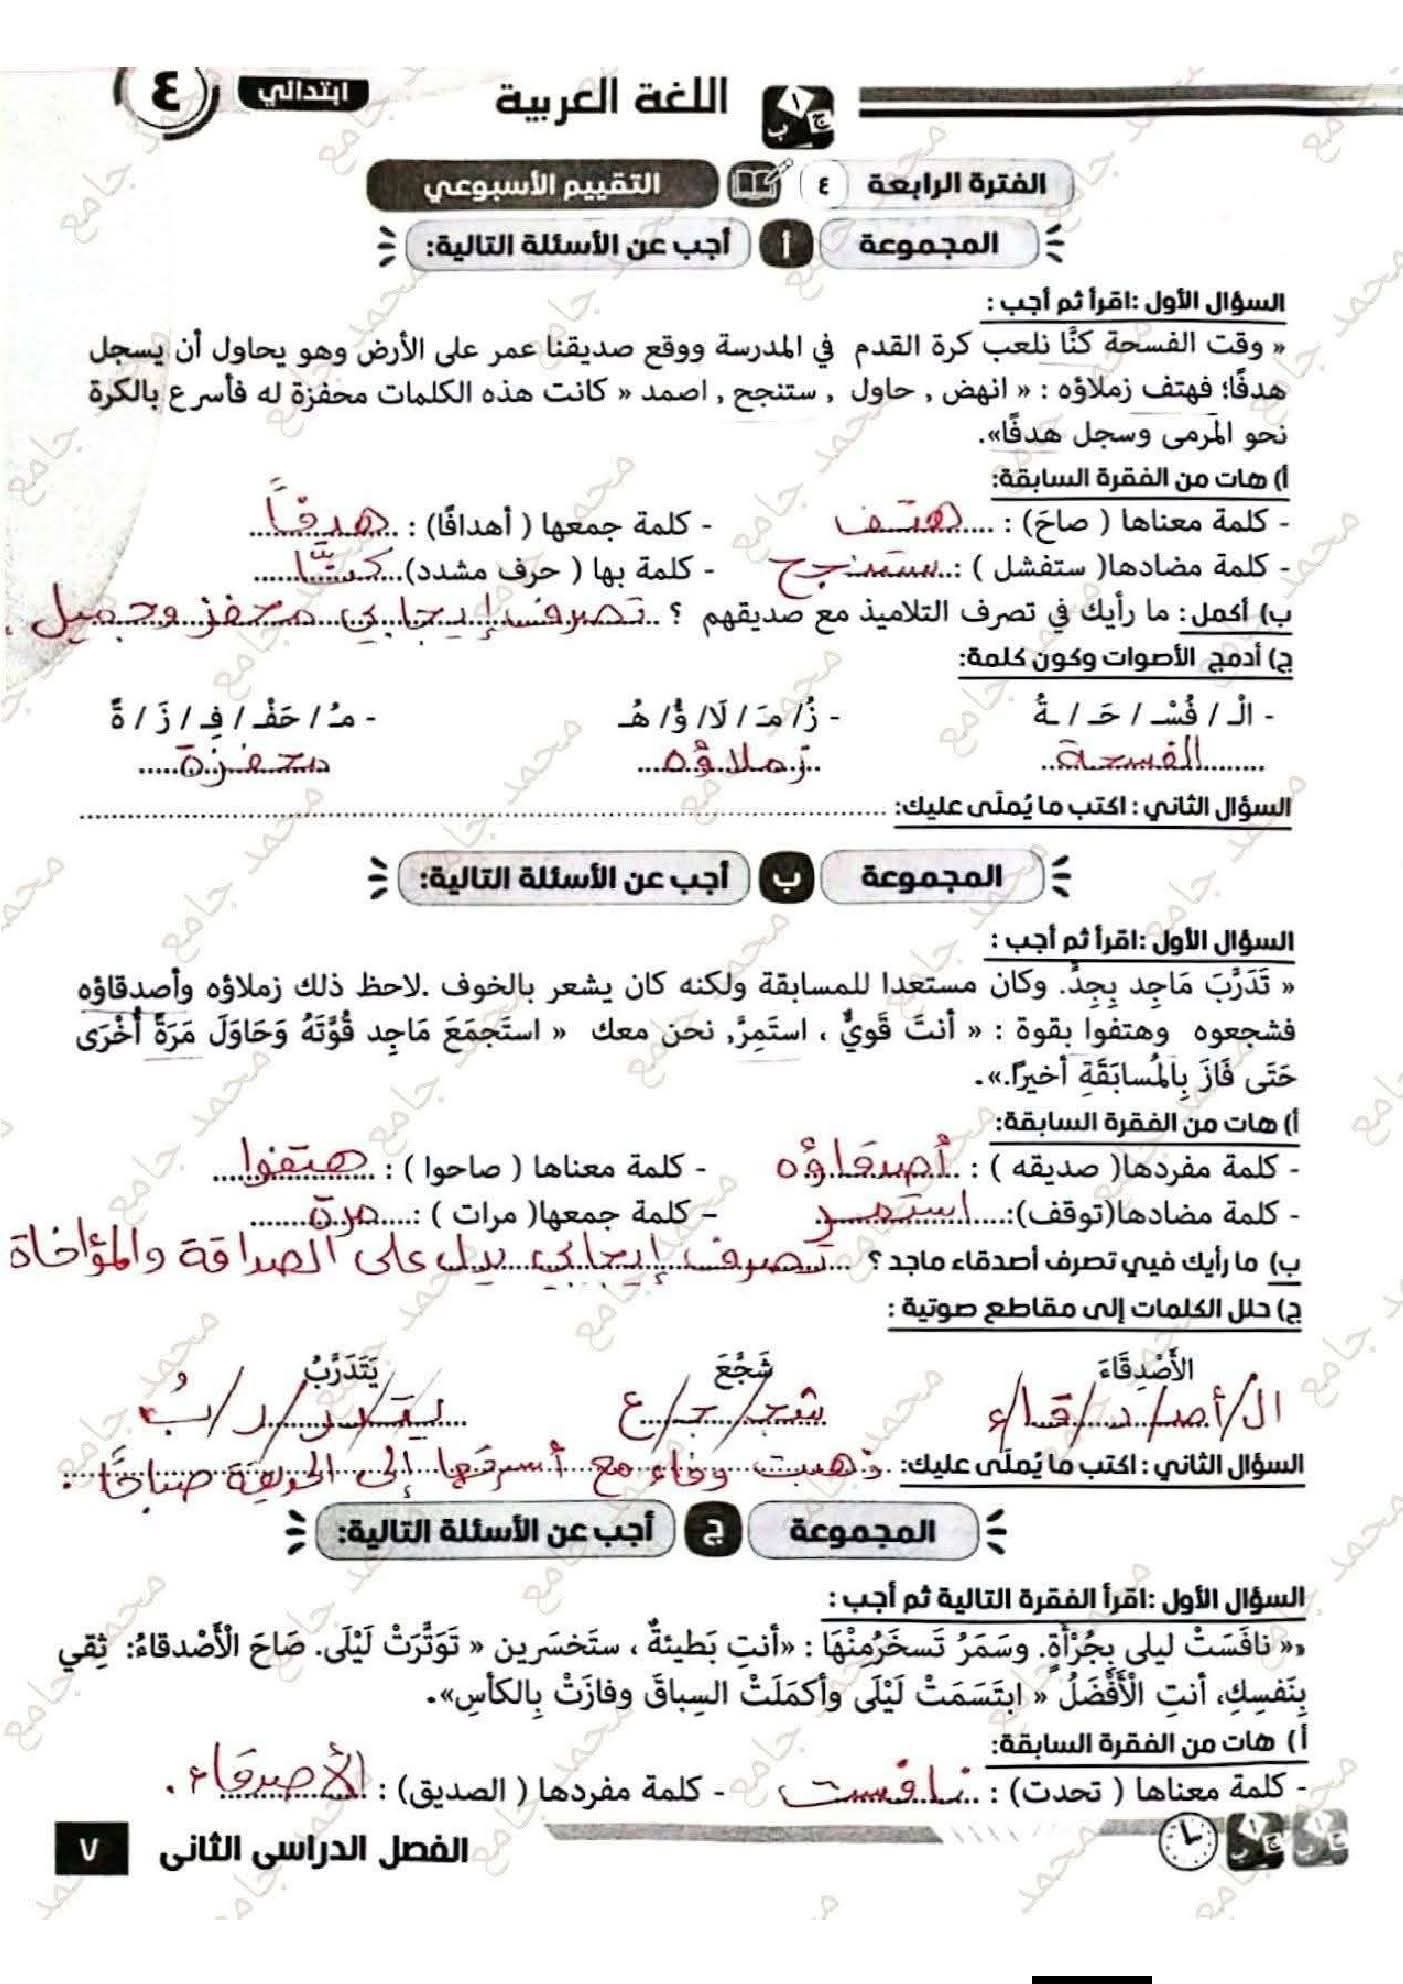 اللغة العربية ابتدائي ٤
الفترة الرابعة ٤ التقييم الأسبوعي
المجموعة أ أجب عن الأسئلة التالية:
السؤال الأول :اقرأ ثم أجب :
« وقت الفسحة كنَّا نلعب كرة القدم في المدرسة ووقع صديقنا عمر على الأرض وهو يحاول أن يسجل
هدفًا؛ فهتف زملاؤه : « انهض , حاول , ستنجح , اصمد » كانت هذه الكلمات محفزة له فأسرع بالكرة
نحو المرمى وسجل هدفًا».
أ) هات من الفقرة السابقة:
- كلمة معناها ( صاحَ) : هتف - كلمة جمعها ( أهدافًا) : هدفًا
- كلمة مضادها( ستفشل ) : ستنجح - كلمة بها ( حرف مشدد) كنَّا
ب) أكمل : ما رأيك في تصرف التلاميذ مع صديقهم ؟ تصرف إيجابي محفز وجميل .
ج) أدمج الأصوات وكون كلمة:
- الْـ / فُسْـ / حَـ / ـةُ - زُ/ مَـ / لَا/ ؤُ/ هُـ - مُـ / حَفْـ / فِـ / زَ / ةً
الفسحة زملاؤه محفزة
السؤال الثاني : اكتب ما يُملَى عليك:
المجموعة ب أجب عن الأسئلة التالية:
السؤال الأول :اقرأ ثم أجب :
« تَدَرَّبَ مَاجِد بِجِدٍّ. وكان مستعدا للمسابقة ولكنه كان يشعر بالخوف .لاحظ ذلك زملاؤه وأصدقاؤه
فشجعوه وهتفوا بقوة : « أنتَ قَويٌّ ، استَمِرَّ, نحن معك » استَجمَعَ مَاجِد قُوَّتَهُ وَحَاوَلَ مَرَةً أُخْرَى
حَتَى فَازَ بِالمُسابَقَةِ أخيرًا.».
أ) هات من الفقرة السابقة:
- كلمة مفردها( صديقه ) : أصدقاؤه - كلمة معناها ( صاحوا ) : هتفوا
- كلمة مضادها(توقف): استمر - كلمة جمعها( مرات ) : مرة
ب) ما رأيك في تصرف أصدقاء ماجد ؟ تصرف إيجابي يدل على الصداقة والمؤاخاة
ج) حلل الكلمات إلى مقاطع صوتية :
الأَصْدِقَاءَ شَجَّعَ يَتَدَرَّبُ
ال/أصـ/د/قا/ء شجـ/جـ/ع يـ/تـ/در/ر/بُ
السؤال الثاني : اكتب ما يُملَى عليك: ذهبت وفاء مع أسرتها إلى الحديقة صباحًا .
المجموعة ج أجب عن الأسئلة التالية:
السؤال الأول :اقرأ الفقرة التالية ثم أجب :
«» نافَسَتْ ليلى بِجُرْأةٍ. وسَمَرُ تَسخَرُمِنْهَا : «أنتِ بَطيئةٌ ، ستَخسَرين » تَوَتَّرَتْ لَيْلَى. صَاحَ الْأَصْدقاءُ: ثِقي
بِنَفسِكِ، أنتِ الْأَفْضَلُ » ابتَسَمَتْ لَيْلَى وأكمَلَتْ السِباقَ وفازَتْ بِالكأسِ».
أ) هات من الفقرة السابقة:
- كلمة معناها ( تحدت) : نافست - كلمة مفردها ( الصديق) : الأصدقاء .
الفصل الدراسى الثانى ٧
محمد جامع